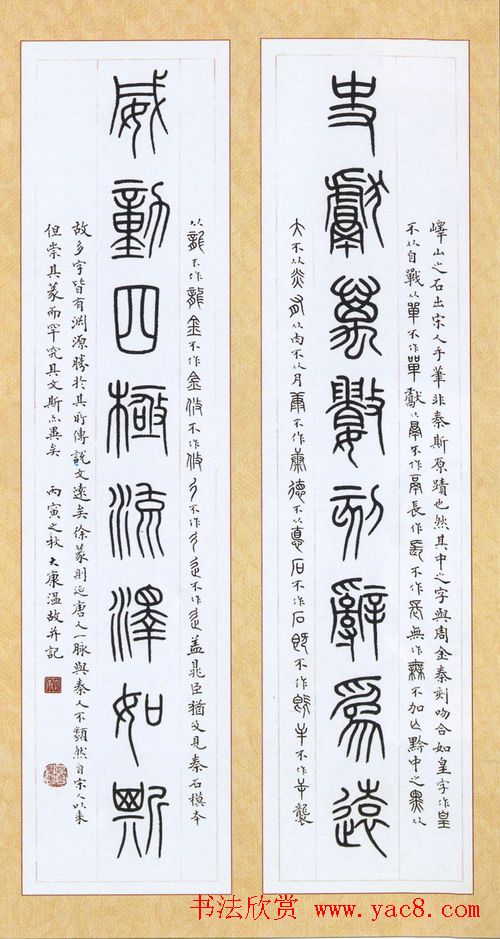 嶧山之石出宋人手筆非秦斯原蹟也然其中之字與周金秦刻吻合如皇字作皇
不从自戰从單不作單獻从鬲不作鬲長作長不作長無作無不加亾黔中之黑从
史獻萬數刻辭爲遠
大不从炎有从肉不从月 不作 德不从悳石不作石既不作既辛不作辛襲
从龍不作龍金不作金攸不作攸 不作 不作 盖晁臣猶及見秦石模本
威動四極流澤如斯
故多字皆有淵源勝於其所傳說文遠矣徐篆則近唐人一脉與秦人不類然自宋人以來
但崇其篆而罕究其文斯亦異矣 丙寅之秋 大康溫故并記
书法欣赏 www.yac8.com